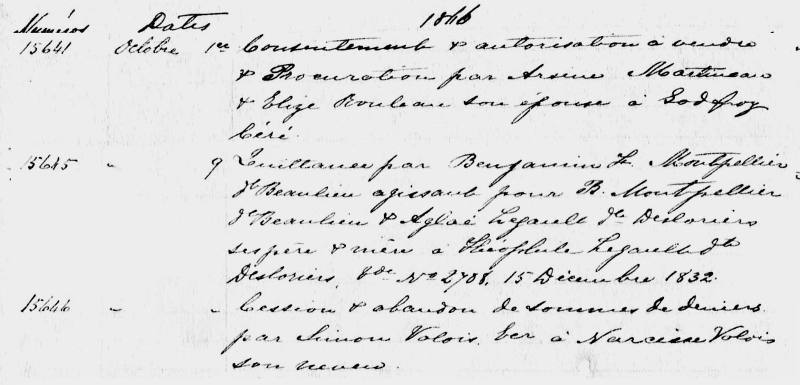 Numéros Dates 1846
15641 Octobre 1er Consentement & autorisation à vendre
& Procuration par Arsène Martineau
& Elize Rouleau son épouse à Godefroy
Céré.
15645 " 9 Quittance par Benjamin H. Montpellier
dt Beaulieu agissant pour B. Montpellier
dt Beaulieu & Aglaé Legault dte Desloriers
ses père & mère à Théophile Legault dt
Desloriers, No 2708, 15 Décembre 1832.
15646 " " Cession & abandon de sommes de deniers
par Simon Valois, Ecr à Narcisse Valois
son neveu.